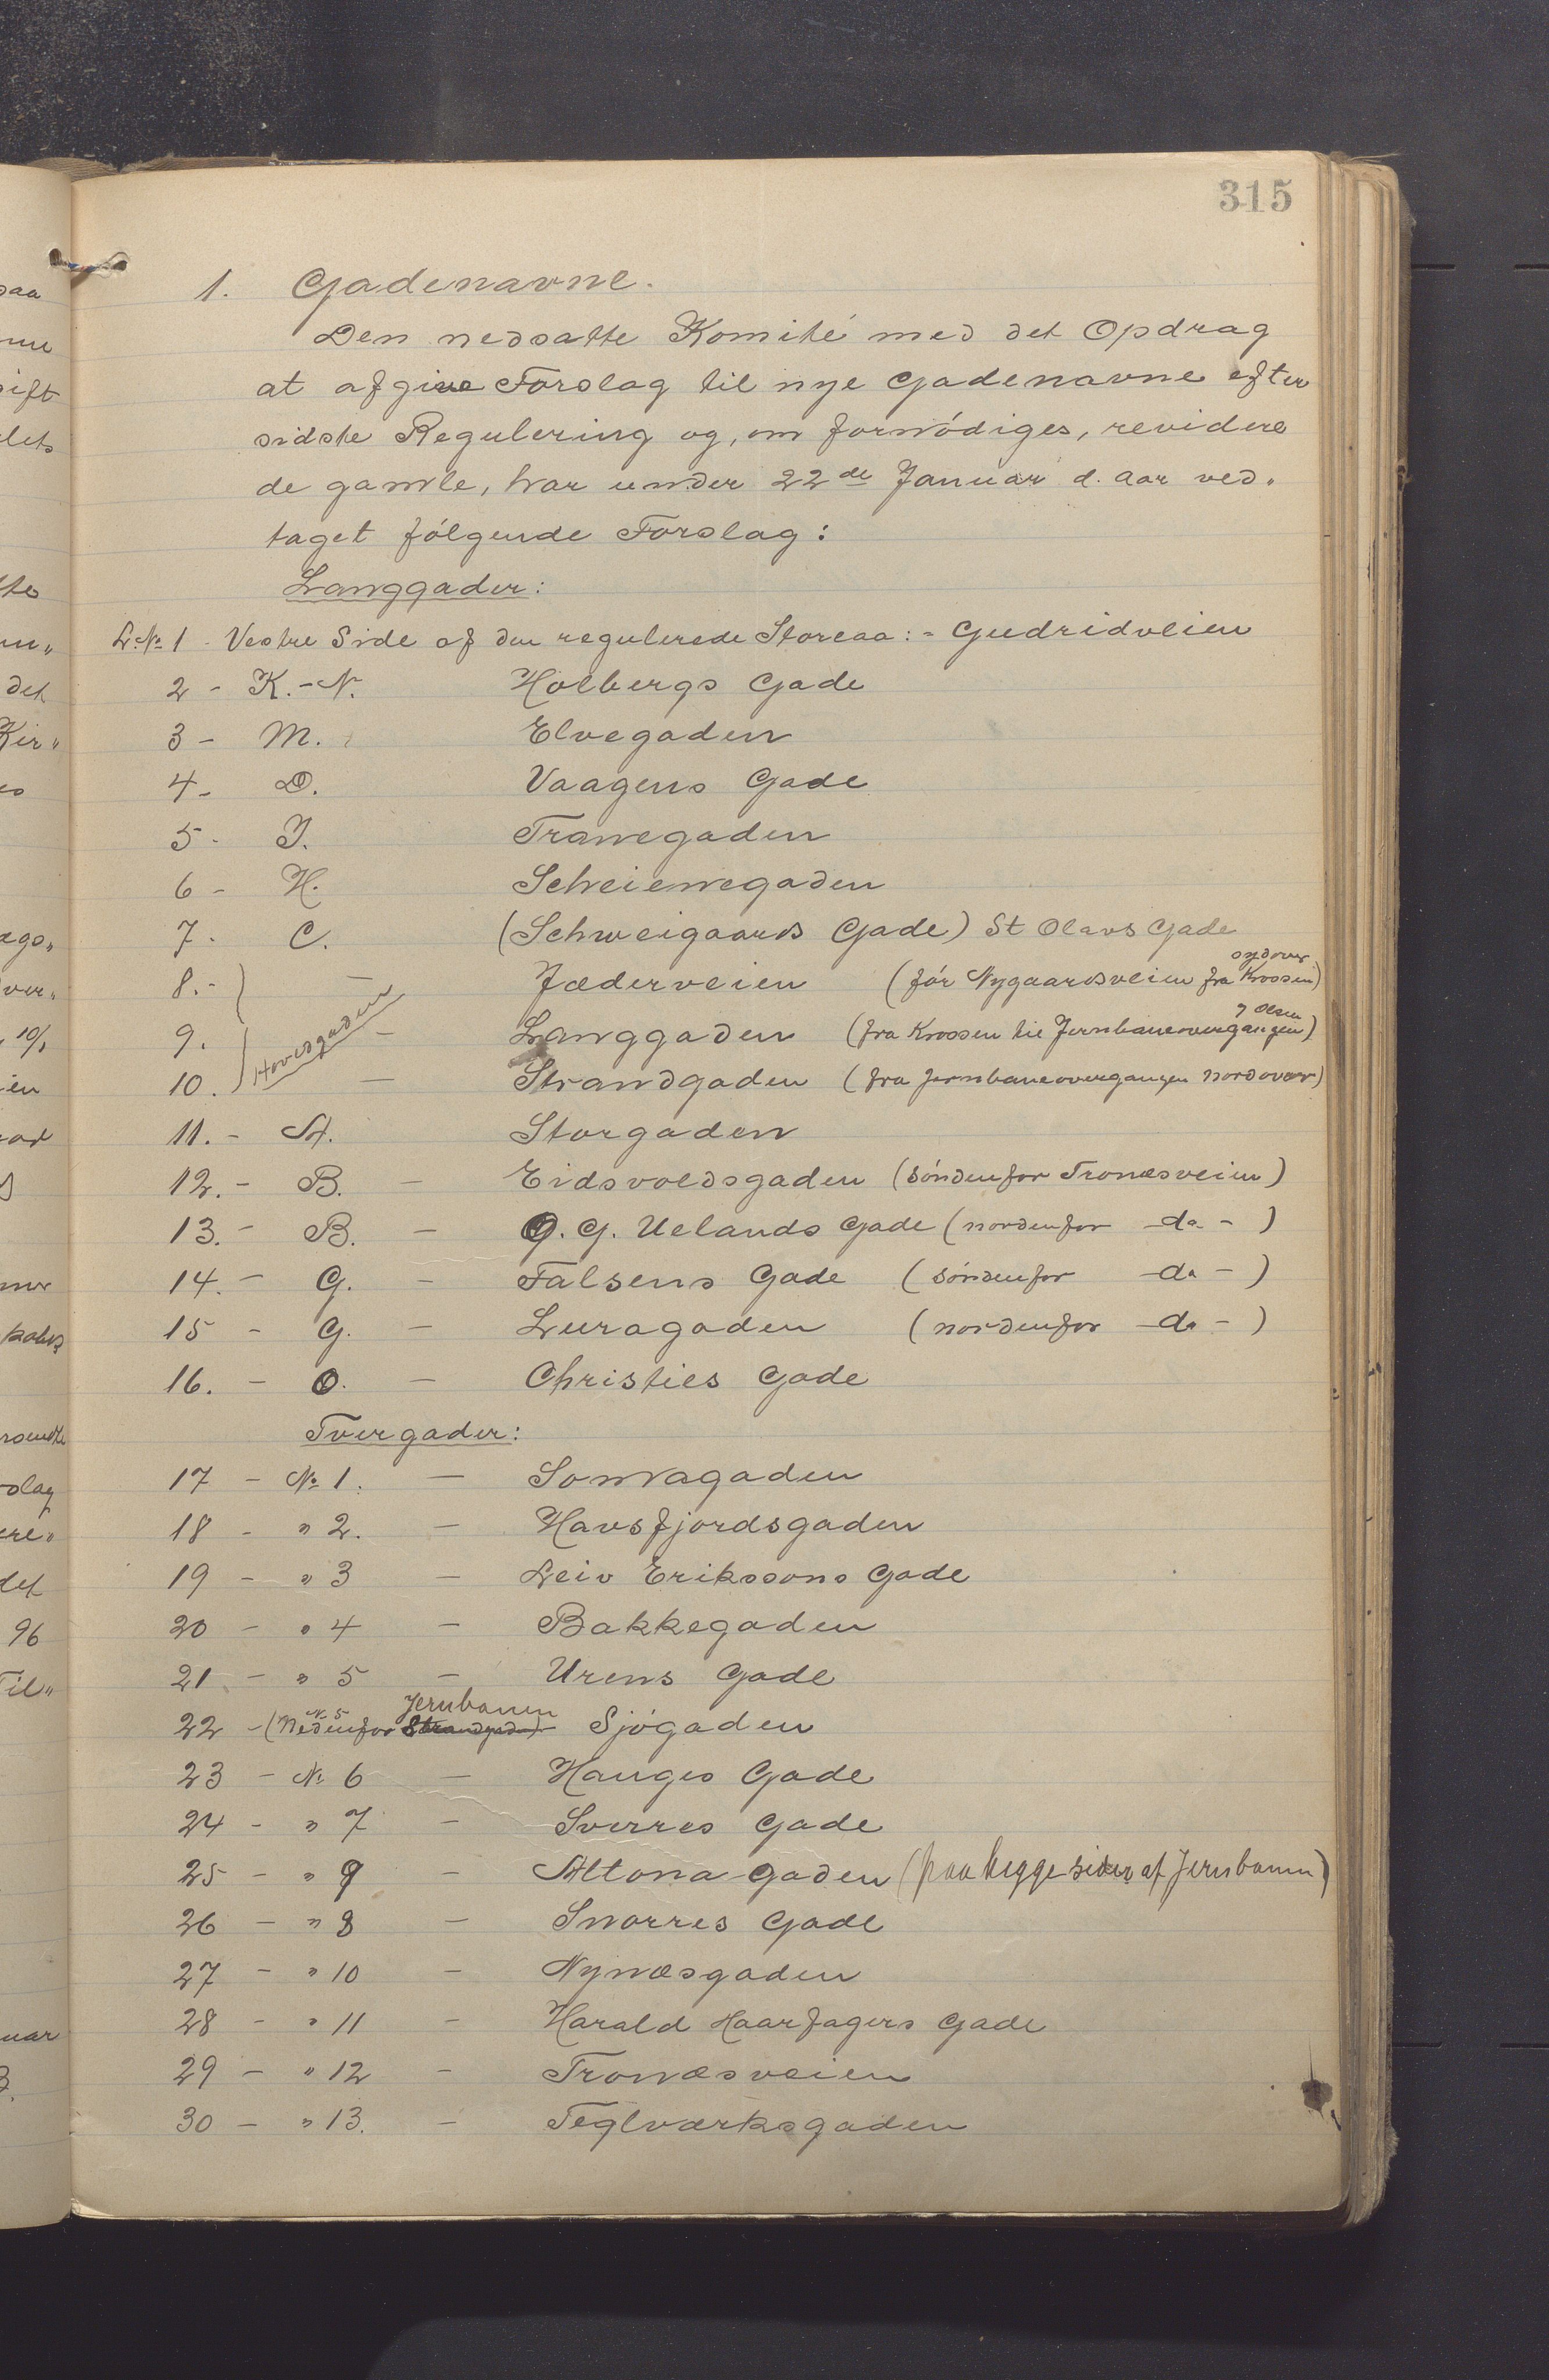 315
1. Gadenavne.
Den nedsatte Komité med det Opdrag
at afgive Forslag til nye Gadenavne efter
sidste Regulering og, om fornódiges, revidere
de gamle, har under 22de Januar d. Aar ved„
taget fólgende Forslag:
Langgader:
L.№ 1 - Vestre Side af den regulerede Storeaa: = Gudridveien
2 - K.-N. Holbergs Gade
3 - M. Elvegaden
4 - D. Vaagens Gade
5 - J. Tranegaden
6 - H. Scheienegaden
7 - C. (Schweigaards Gade) St Olavs Gade
8. - — Jæderveien (fór Nygaardsveien fra Krossen sydover)
9. Hovedgaden — Langgaden (fra Krossen til Jernbaneovergangen)
10. — Strandgaden (fra Jernbaneovergangen nordover)
11. - A. Storgaden
12. - B. — Eidsvoldsgaden (sóndenfor Tronæsveien)
13. - B. — O. G. Uelands Gade (nordenfor -do- )
14. - G. — Falsens Gade (sóndenfor -do- )
15 - G. — Luragaden (nordenfor -do- )
16. - O. — Christies Gade
Tvergader:
17 - № 1. — Somagaden
18 - „ 2. — Havsfjordsgaden
19 - „ 3 — Leiv Erikssons Gade
20 - „ 4 — Bakkegaden
21 - „ 5 — Urens Gade
22 - (Nedenfor № 5 Strandgaden) Jernbanen Sjógaden
23 - № 6 — Hauges Gade
24 - „ 7 — Sverres Gade
25 - „ 9 — Altona gaden (paa begge sider af Jernbanen)
26 - „ 8 — Snorres Gade
27 - „ 10 — Nynæsgaden
28 - „ 11 — Harald Haarfagers Gade
29 - „ 12 — Tronæsveien
30 - „ 13. — Teglværksgaden